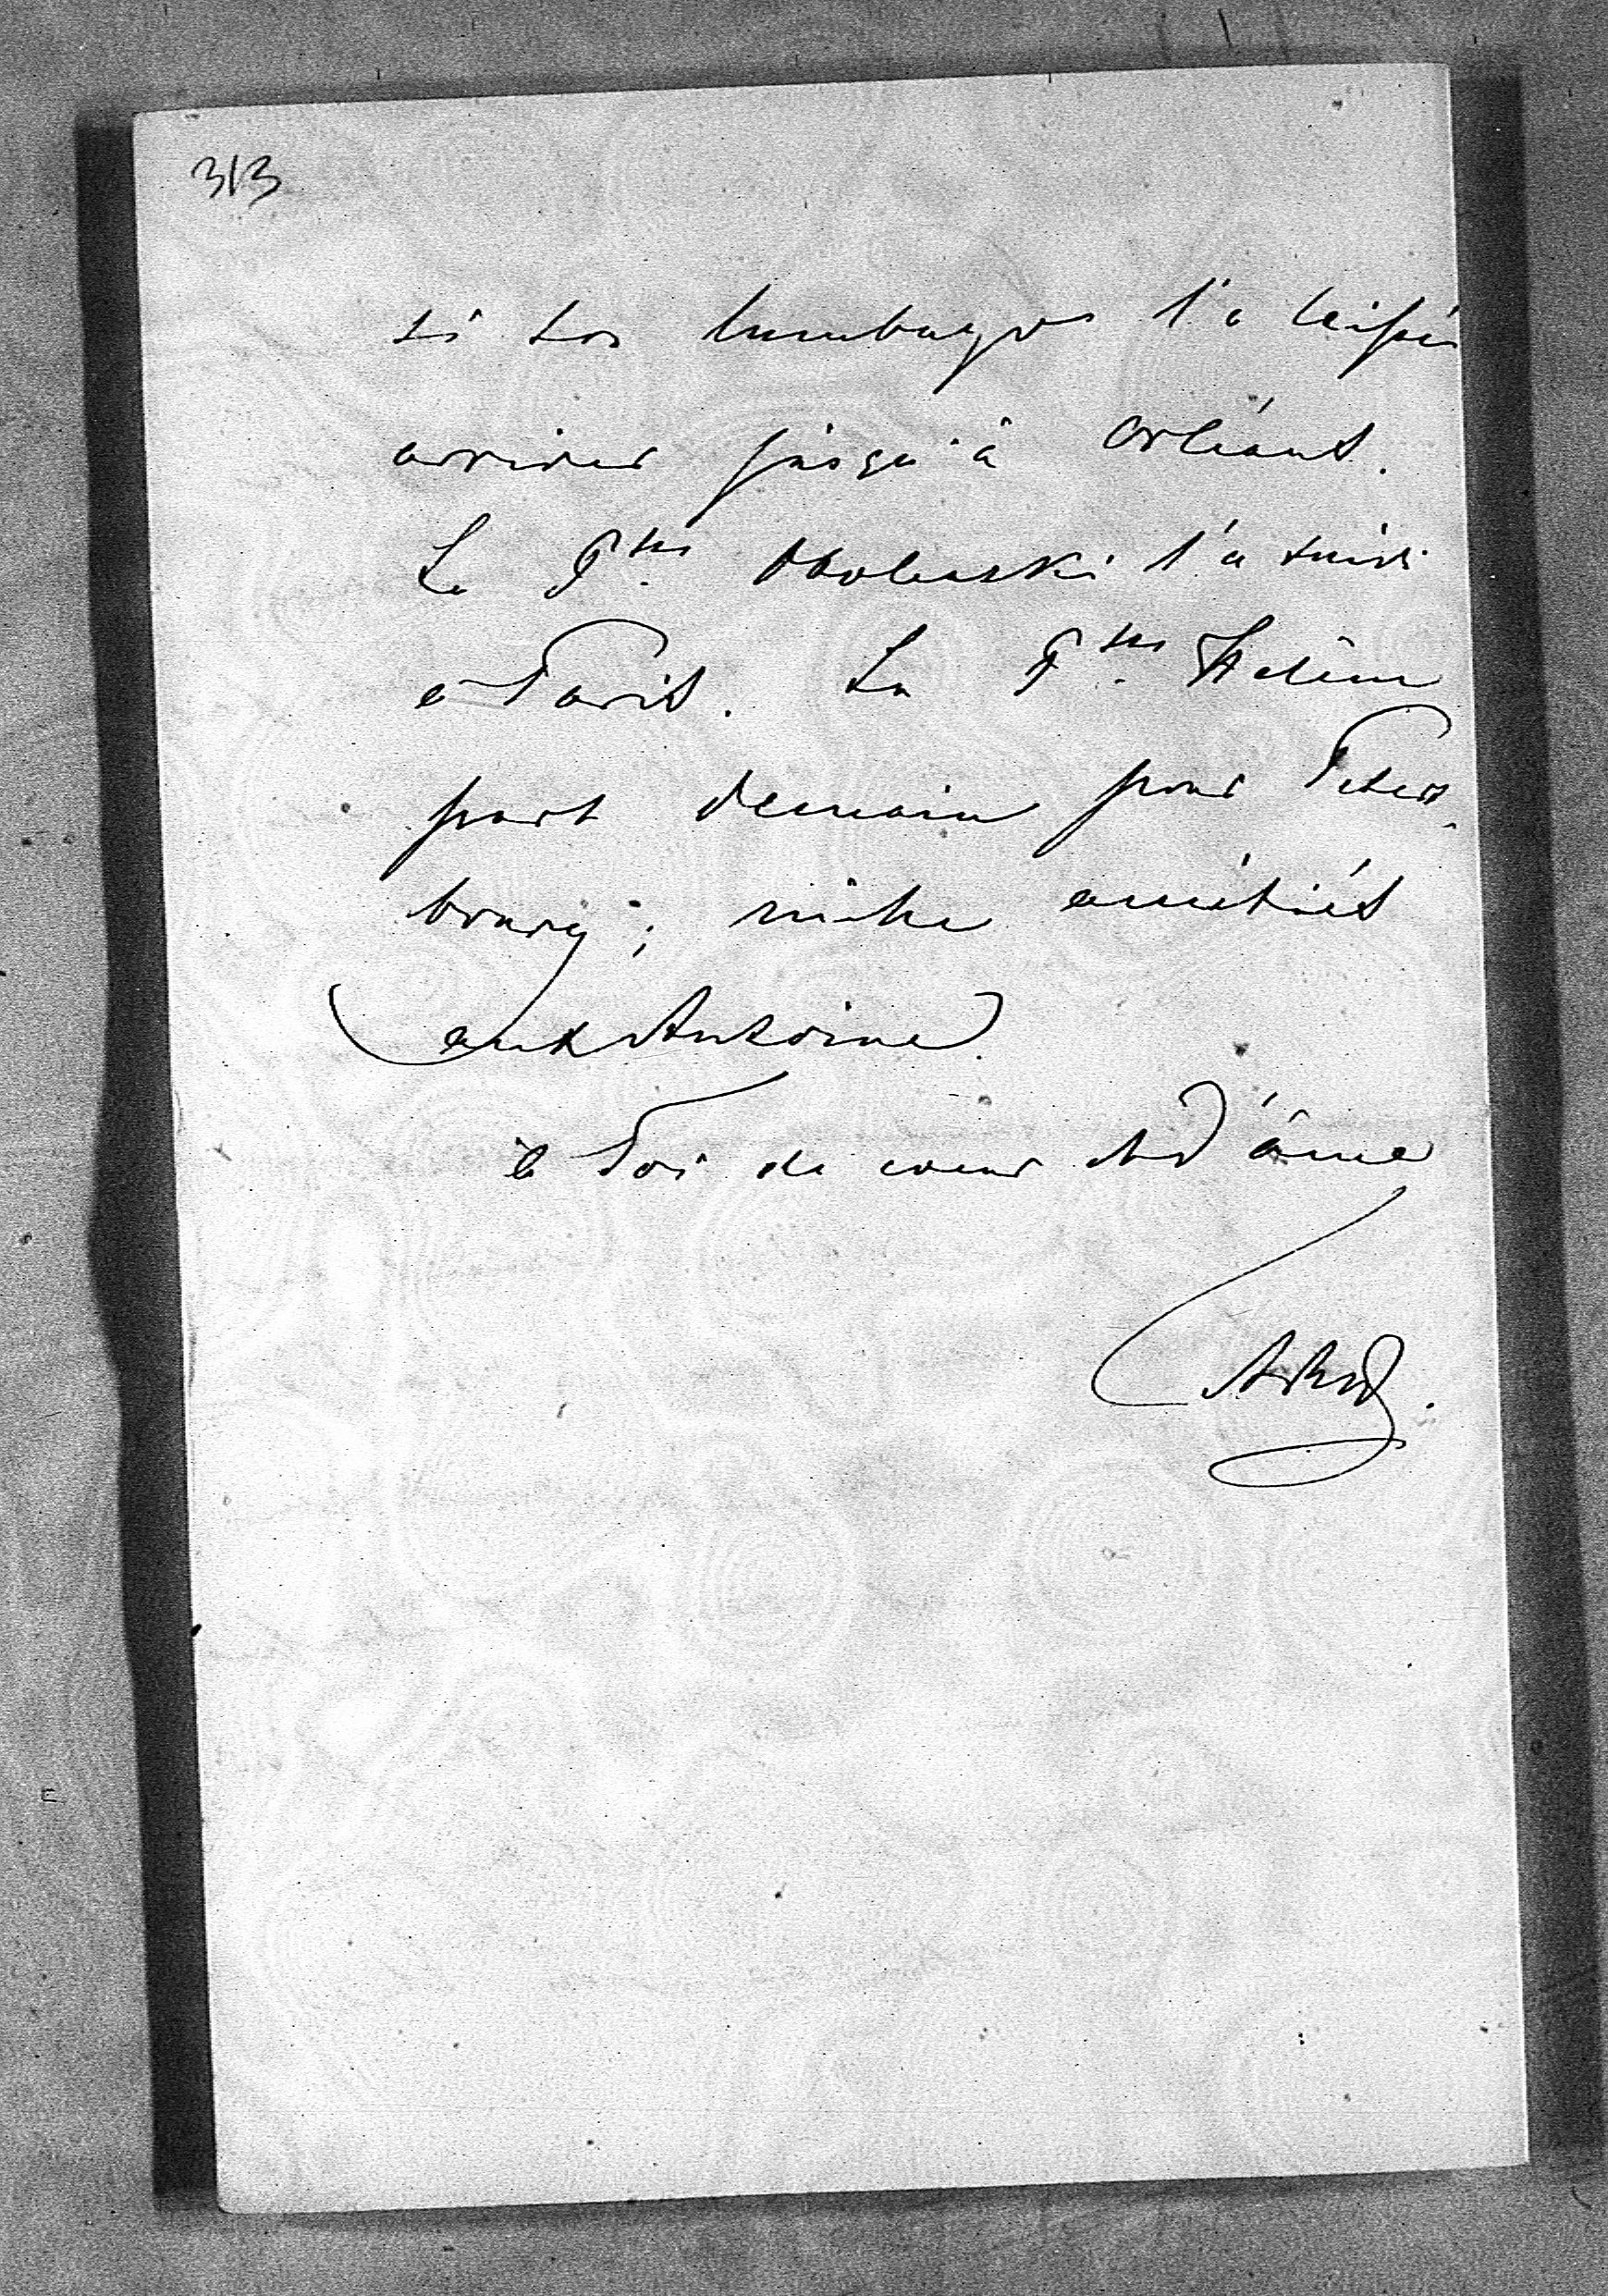 313
si son lumbago l'a laissé
arriver jusqu'à Orléans.
La P.sse Obolenski l'a suivi
à Paris. La P.sse Hélène
part demain pour Peters-
bourg; mille amitiés
aux Antoine.
à Toi de cœur et d'âme